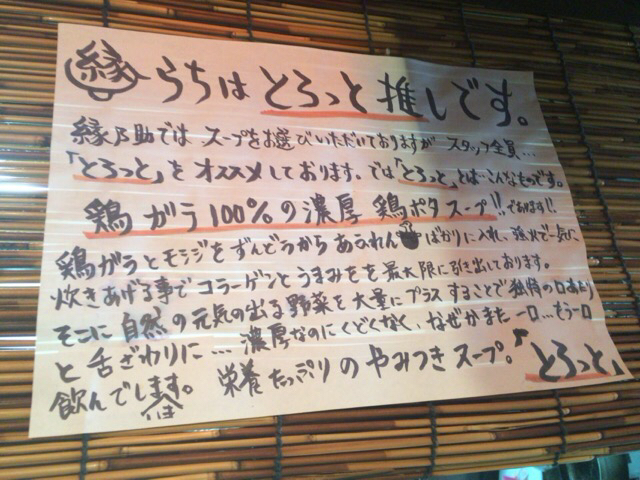 縁 うちはとろっと推しです。
縁乃助では スープをお選びいただいておりますが スタッフ全員…
「とろっと」をオススメしております。では「とろっと」とは こんなものです。
鶏ガラ100%の濃厚 鶏ポタスープ!!であります!!
鶏ガラとモミジをずんどうからあふれんばかりに入れ、強火で一気に
炊きあげる事でコラーゲンとうまみをを最大限に引き出しております。
そこに自然の元気の出る野菜を大量にプラスすることで独特の口あたり
と舌ざわりに…濃厚なのにくどくなく、なぜかまた一口…もう一口
飲んでします。 栄養たっぷりのやみつきスープ。「とろっと」